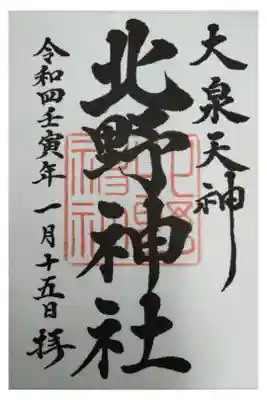 大泉天神
北野神社
令和四壬寅年 一月十五日 拝